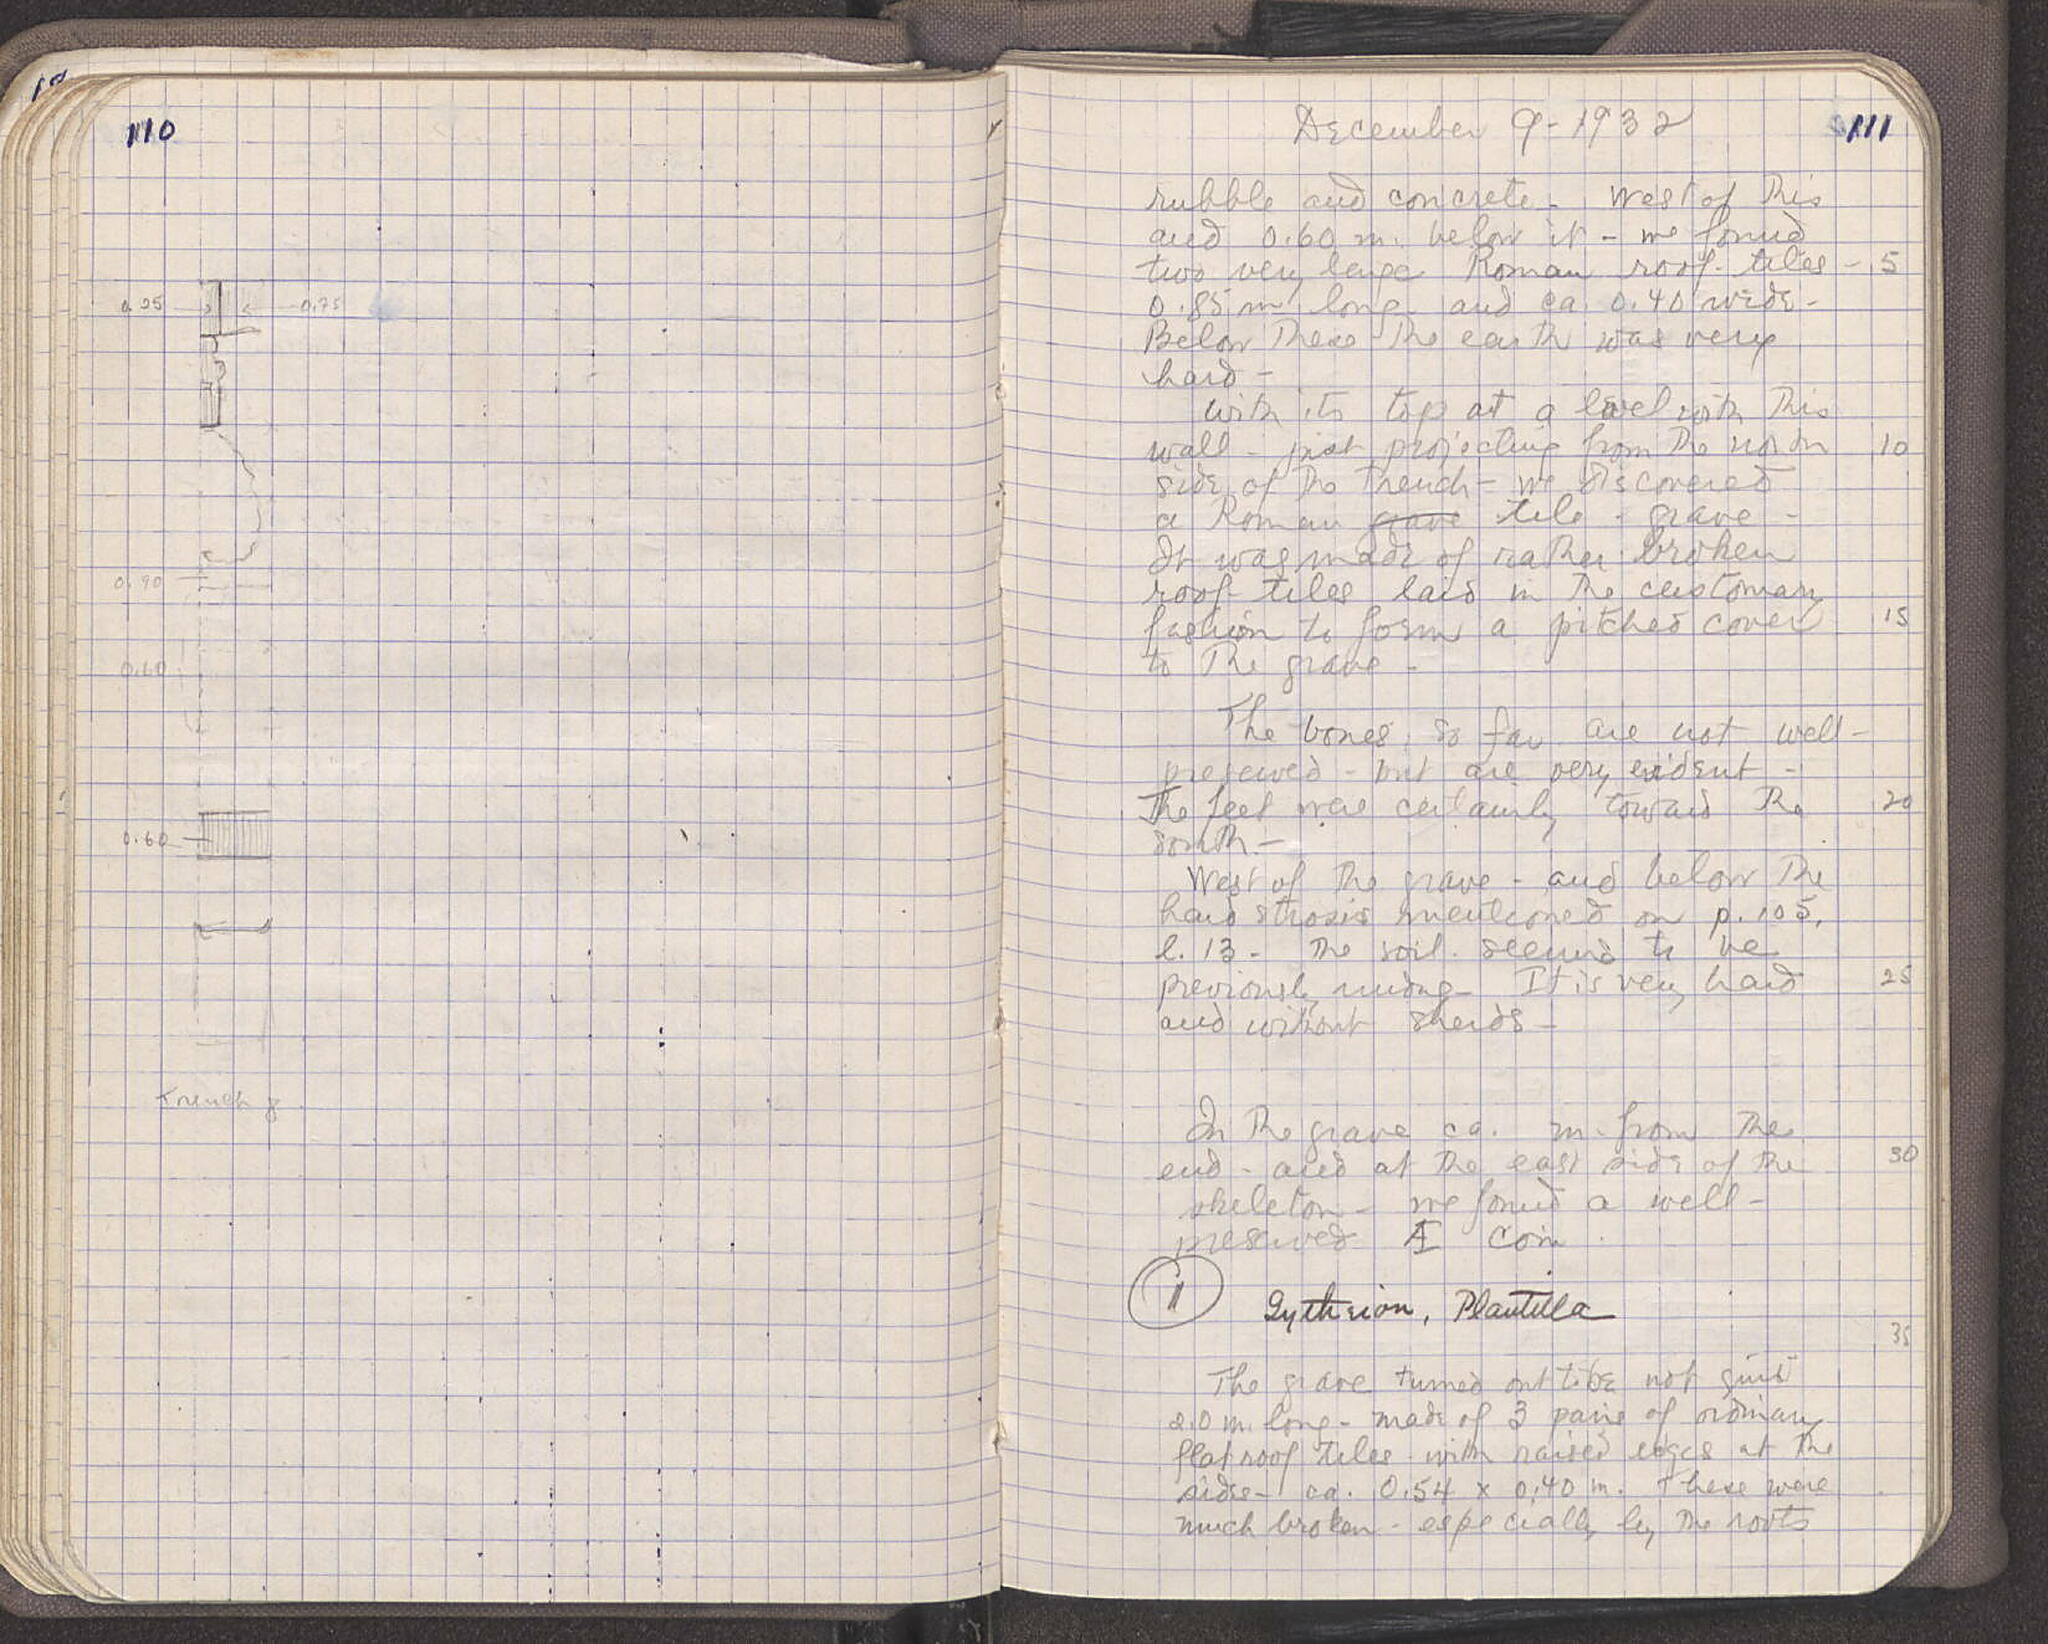 110
0.25
0.75
0.90
0.60
0.60
Trench 8
December 9-1932
111
rubble and concrete - West of this
and 0.60 m. below it - we found
two very large Roman roof-tiles - 5
0.85 m long and ca. 0.40 wide -
Below these the earth was very
hard -
With its top at a level with this
wall - just projecting from the north 10
side of the trench - we discovered
a Roman grave tile-grave -
It was made of rather broken
roof-tiles laid in the customary
fashion to form a pitched cover 15
to the grave -
The bones so far are not well-
preserved - but are very evident -
The feet were certainly toward the 20
south -
West of the grave - and below the
hard strosis mentioned on p. 105,
l. 13 - the soil seemed to be
previously undug - It is very hard 25
and without sherds -
In the grave ca. m. from the
end - and at the east side of the 30
skeleton - we found a well-
preserved Æ coin.
1
Gytheion, Plautilla
35
The grave turned out to be not quite
2.0 m. long - made of 3 pairs of ordinary
flat roof tiles with raised edges at the
sides - ca. 0.54 x 0.40 m. These were
much broken - especially by the roots